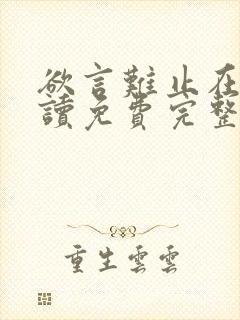 欲言難止在
讀免費完整
重生雲雲